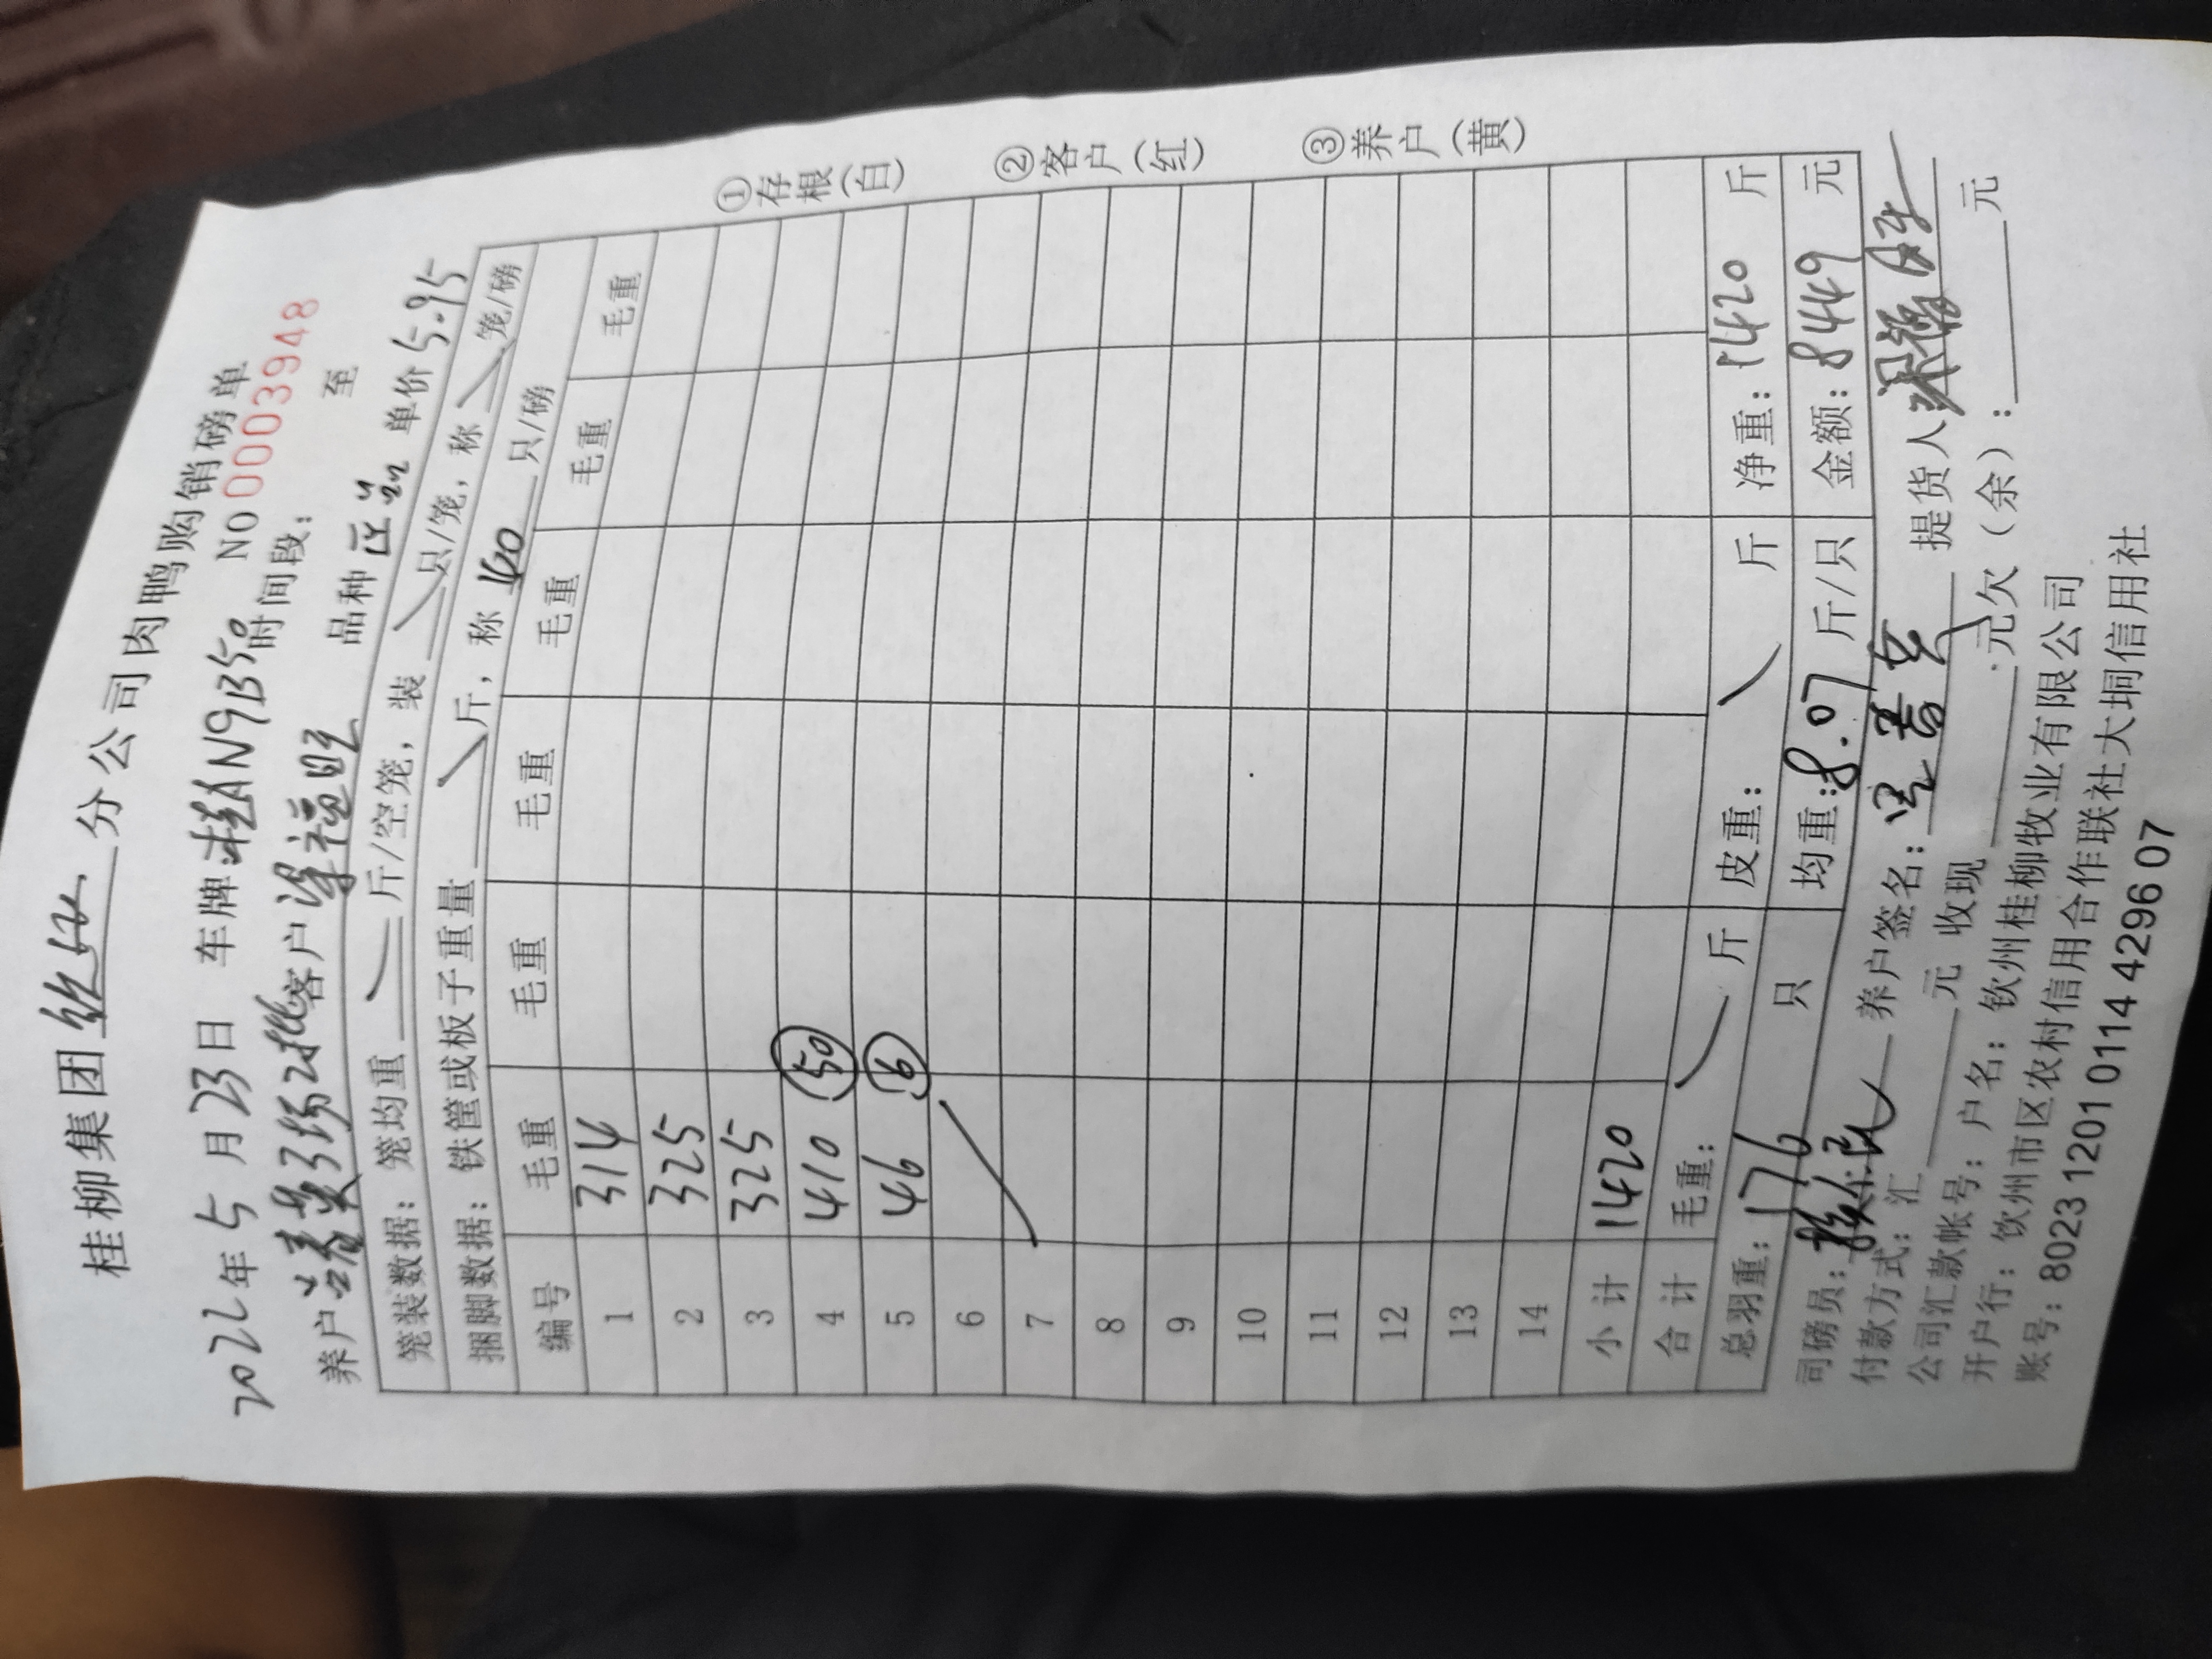 桂柳集团 分公司肉鸭购销磅单
2022年5月23日 车牌桂AN9B50 NO 00003948
时间段： 至
养户 3场2批 客户梁福旺 品种 单价5.95
笼装数据：笼均重 斤/空笼，装 只/笼，称 笼/磅
捆脚数据：铁筐或板子重量 斤，称 40 只/磅
编号 毛重 毛重 毛重 毛重 毛重 毛重
1 314
2 325
3 325
4 410 50
5 46 6
6
7
8
9
10
11
12
13
14
小计 1420
合计
毛重： 斤 皮重： 斤 净重：1420 斤
总羽重：176 只 均重：8.07 斤/只 金额：8449 元
司磅员： 养户签名： 提货人
付款方式：汇 元 收现 元欠（余）： 元
公司汇款帐号：户名：钦州桂柳牧业有限公司
开户行：钦州市区农村信用合作联社大垌信用社
账号：8023 1201 0114 4296 07
①存根(白)
②客户(红)
③养户(黄)